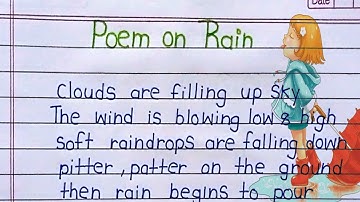 Date
Poem on Rain
Clouds are filling up sky
The wind is blowing low & high
soft raindrops are falling down
pitter, patter on the ground
then rain begins to pour